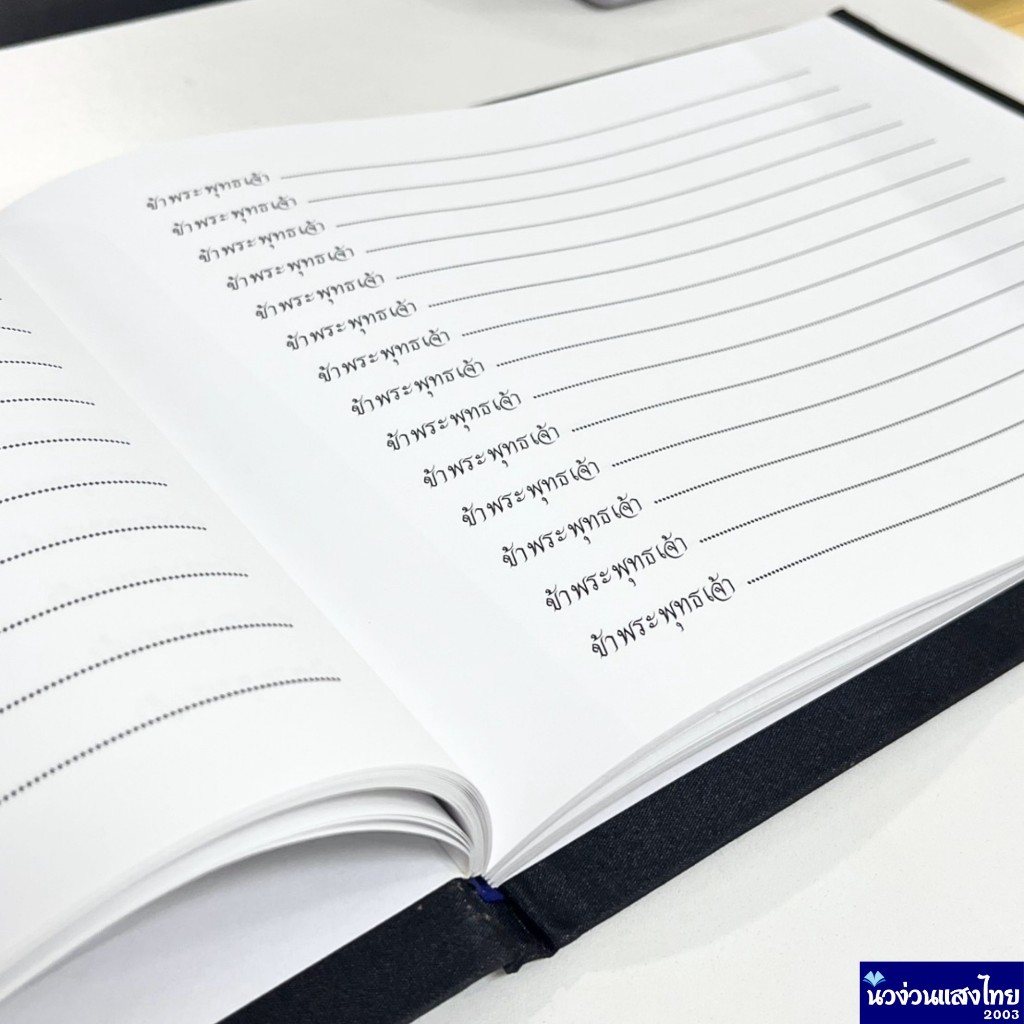 ข้าพระพุทธเจ้า
ข้าพระพุทธเจ้า
ข้าพระพุทธเจ้า
ข้าพระพุทธเจ้า
ข้าพระพุทธเจ้า
ข้าพระพุทธเจ้า
ข้าพระพุทธเจ้า
ข้าพระพุทธเจ้า
ข้าพระพุทธเจ้า
ข้าพระพุทธเจ้า
ข้าพระพุทธเจ้า
ข้าพระพุทธเจ้า
ข้าพระพุทธเจ้า
ข้าพระพุทธเจ้า
นิวง่วนแสงไทย
2003